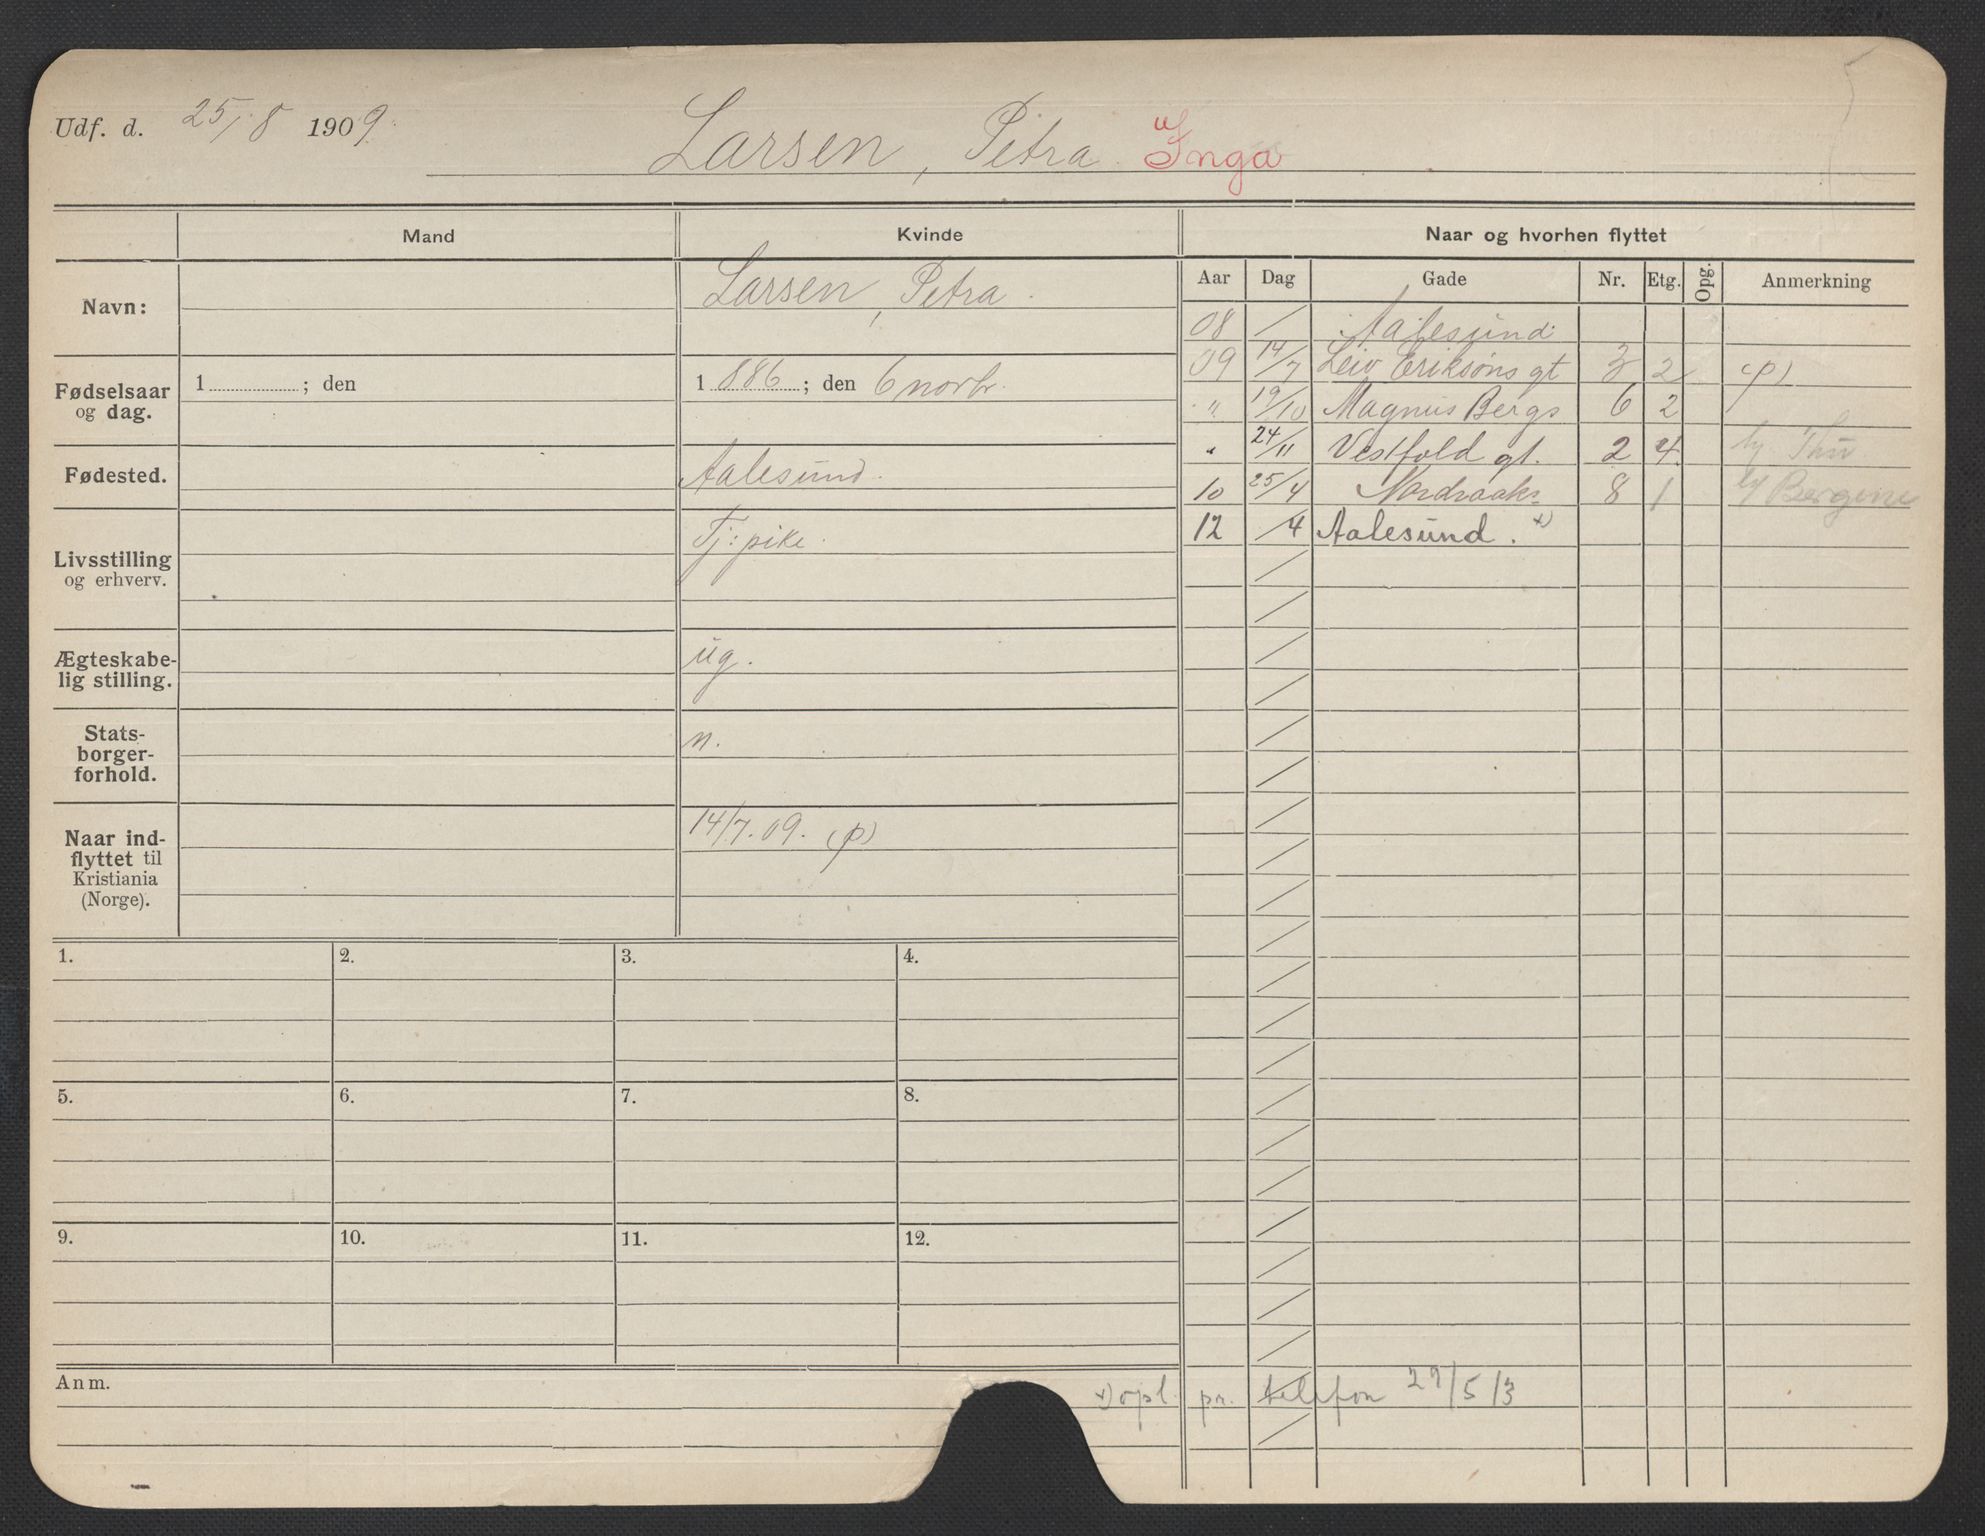 Udf. d. 25/8 1909. Larsen, Petra Inga
Mand Kvinde Naar og hvorhen flyttet
Aar Dag Gade Nr. Etg. Opg. Anmerkning
Navn: Larsen, Petra.
Fødselsaar og dag. 1 ; den 1 886 ; den 6 novbr.
Fødested. Aalesund.
Livsstilling og erhverv. Tj: pike.
Ægteskabe-
lig stilling. ug.
Stats-
borger-
forhold. n.
Naar ind-
flyttet til
Kristiania
(Norge). 14/7. 09. (p)
08 / Aalesund.
09 14/7 Leiv Eriksøns gt 3 2 (p)
" 19/10 Magnus Bergs 6 2
" 24/11 Vestfold gt. 2 4. hj Thu
10 25/4 Nordraaks= 8 1 hj Bergene
12 /4 Aalesund. x)
1. 2. 3. 4.
5. 6. 7. 8.
9. 10. 11. 12.
Anm. x) opl. pr. telefon 29/5 13